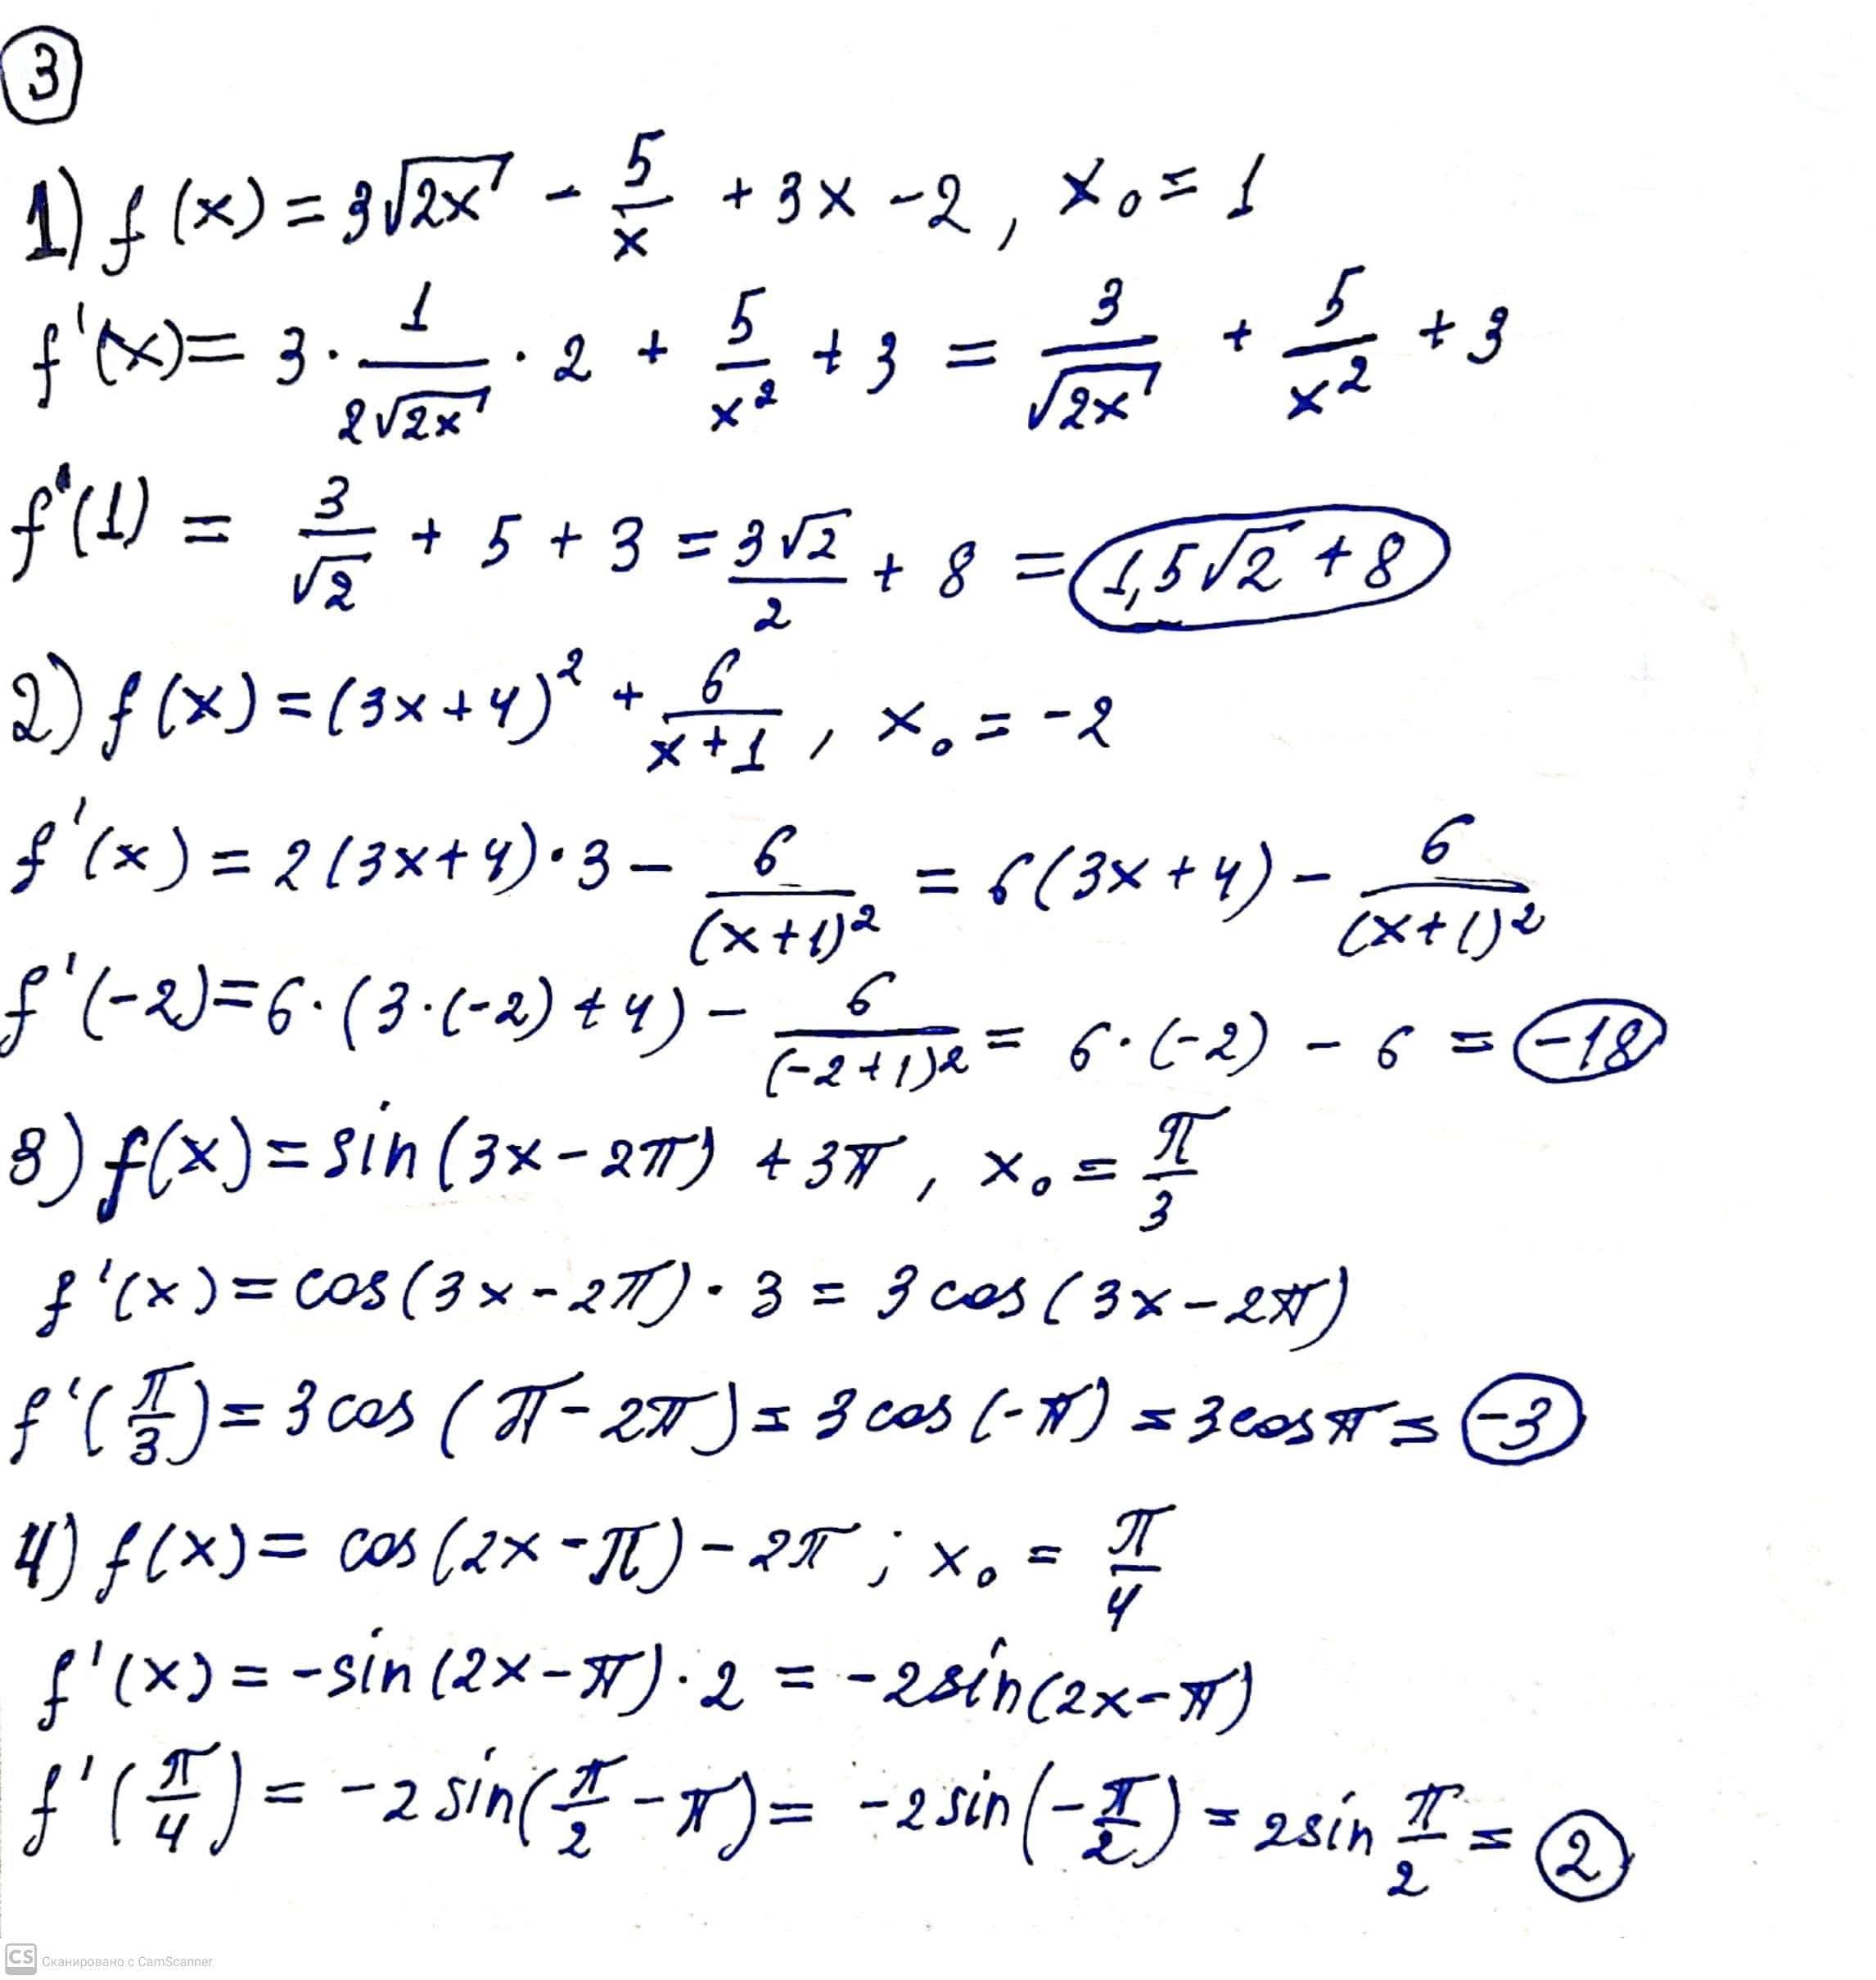 3
1) f(x) = 3√2x - 5/x + 3x - 2, x₀ = 1
f'(x) = 3 · 1/(2√2x) · 2 + 5/x² + 3 = 3/√2x + 5/x² + 3
f'(1) = 3/√2 + 5 + 3 = 3√2/2 + 8 = 1,5√2 + 8
2) f(x) = (3x+4)² + 6/(x+1), x₀ = -2
f'(x) = 2(3x+4)·3 - 6/(x+1)² = 6(3x+4) - 6/(x+1)²
f'(-2) = 6·(3·(-2)+4) - 6/(-2+1)² = 6·(-2) - 6 = -18
3) f(x) = sin(3x-2π) + 3π, x₀ = π/3
f'(x) = cos(3x-2π)·3 = 3cos(3x-2π)
f'(π/3) = 3cos(π-2π) = 3cos(-π) = 3cosπ = -3
4) f(x) = cos(2x-π) - 2π; x₀ = π/4
f'(x) = -sin(2x-π)·2 = -2sin(2x-π)
f'(π/4) = -2sin(π/2-π) = -2sin(-π/2) = 2sin π/2 = 2
CS Сканировано с CamScanner